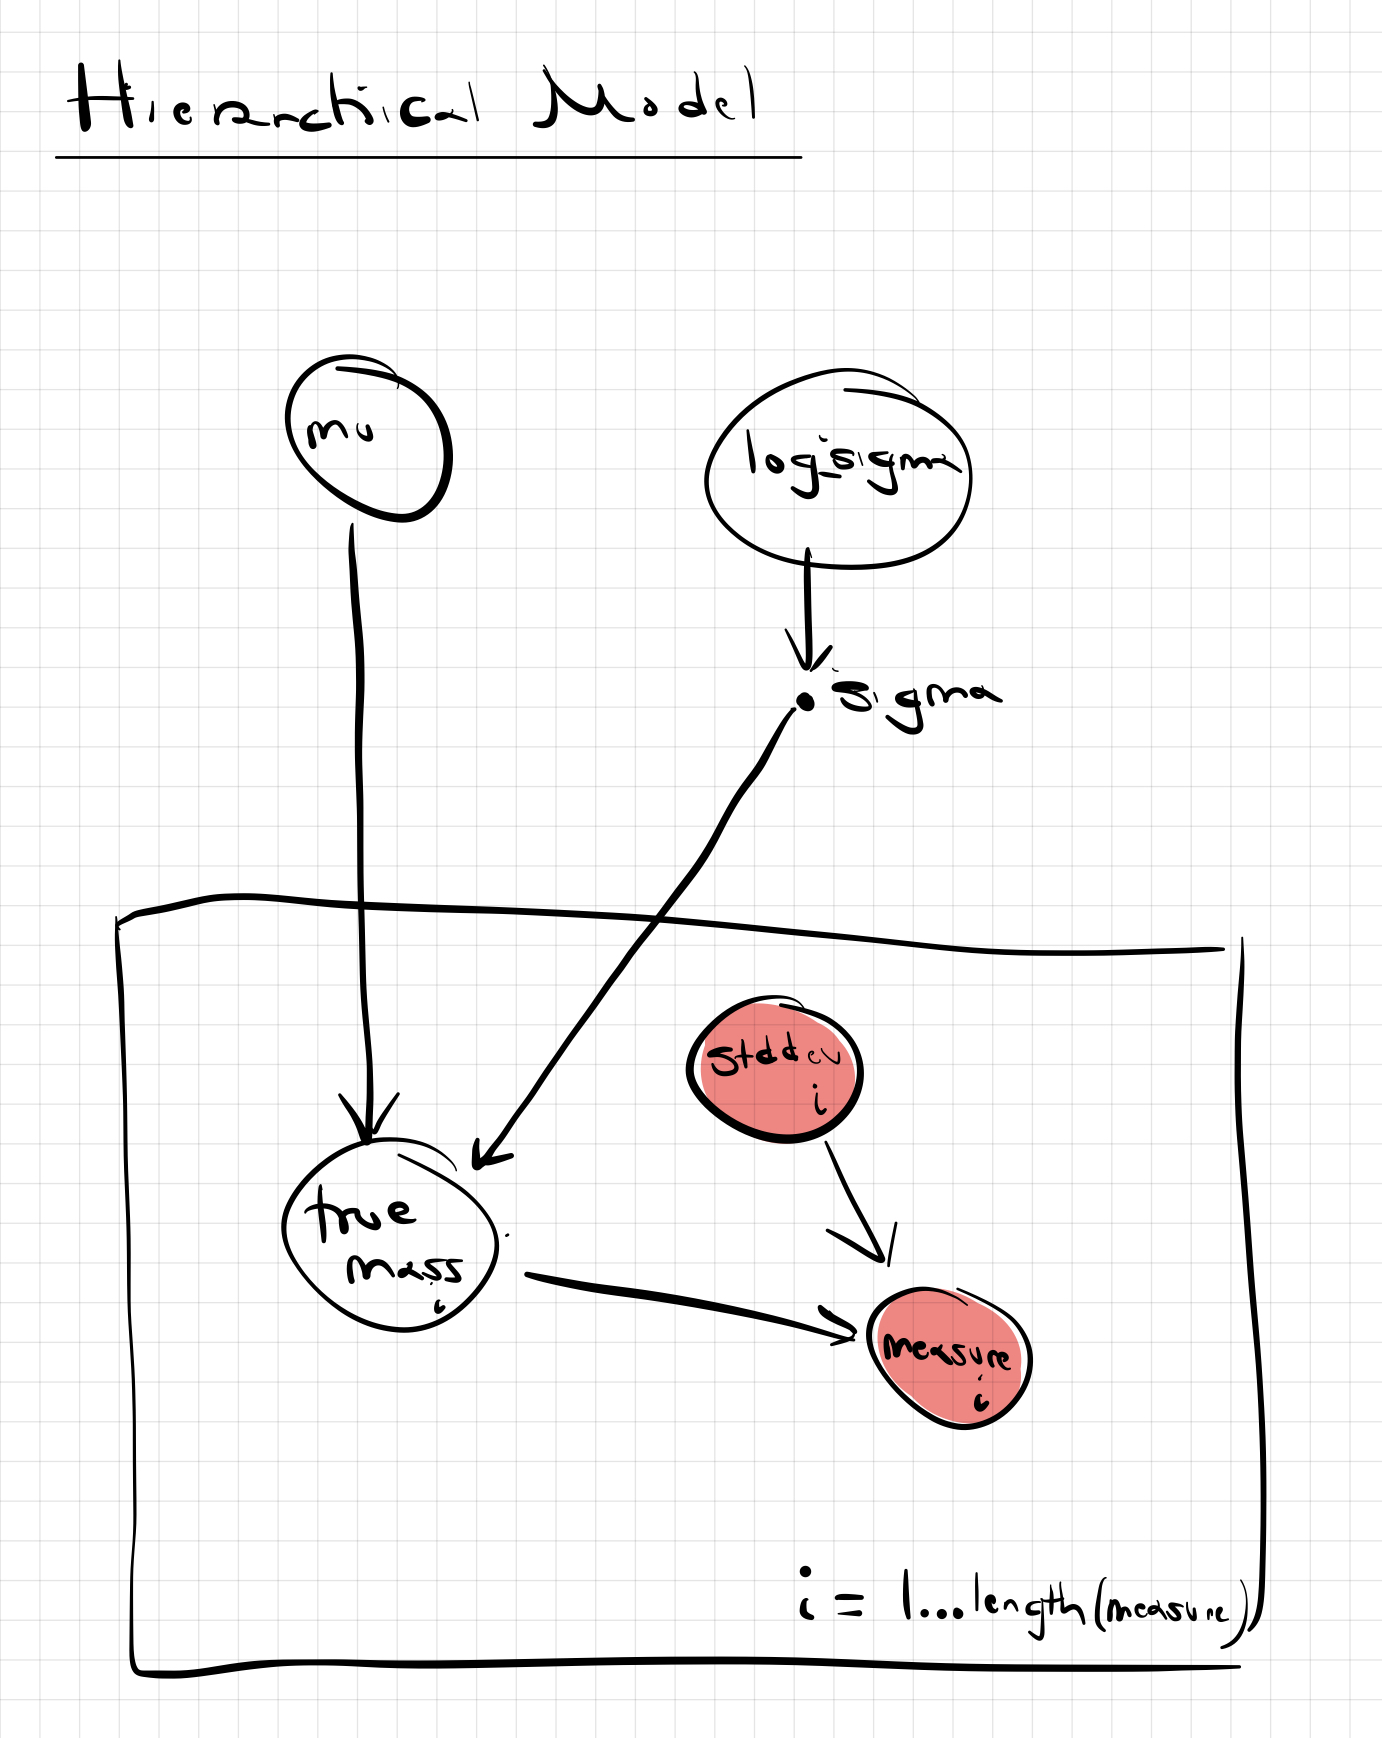 Hierarchical Model
mu
log_sigma
sigma
stddev
i
true
mass
i
measure
i
i = 1...length(measure)